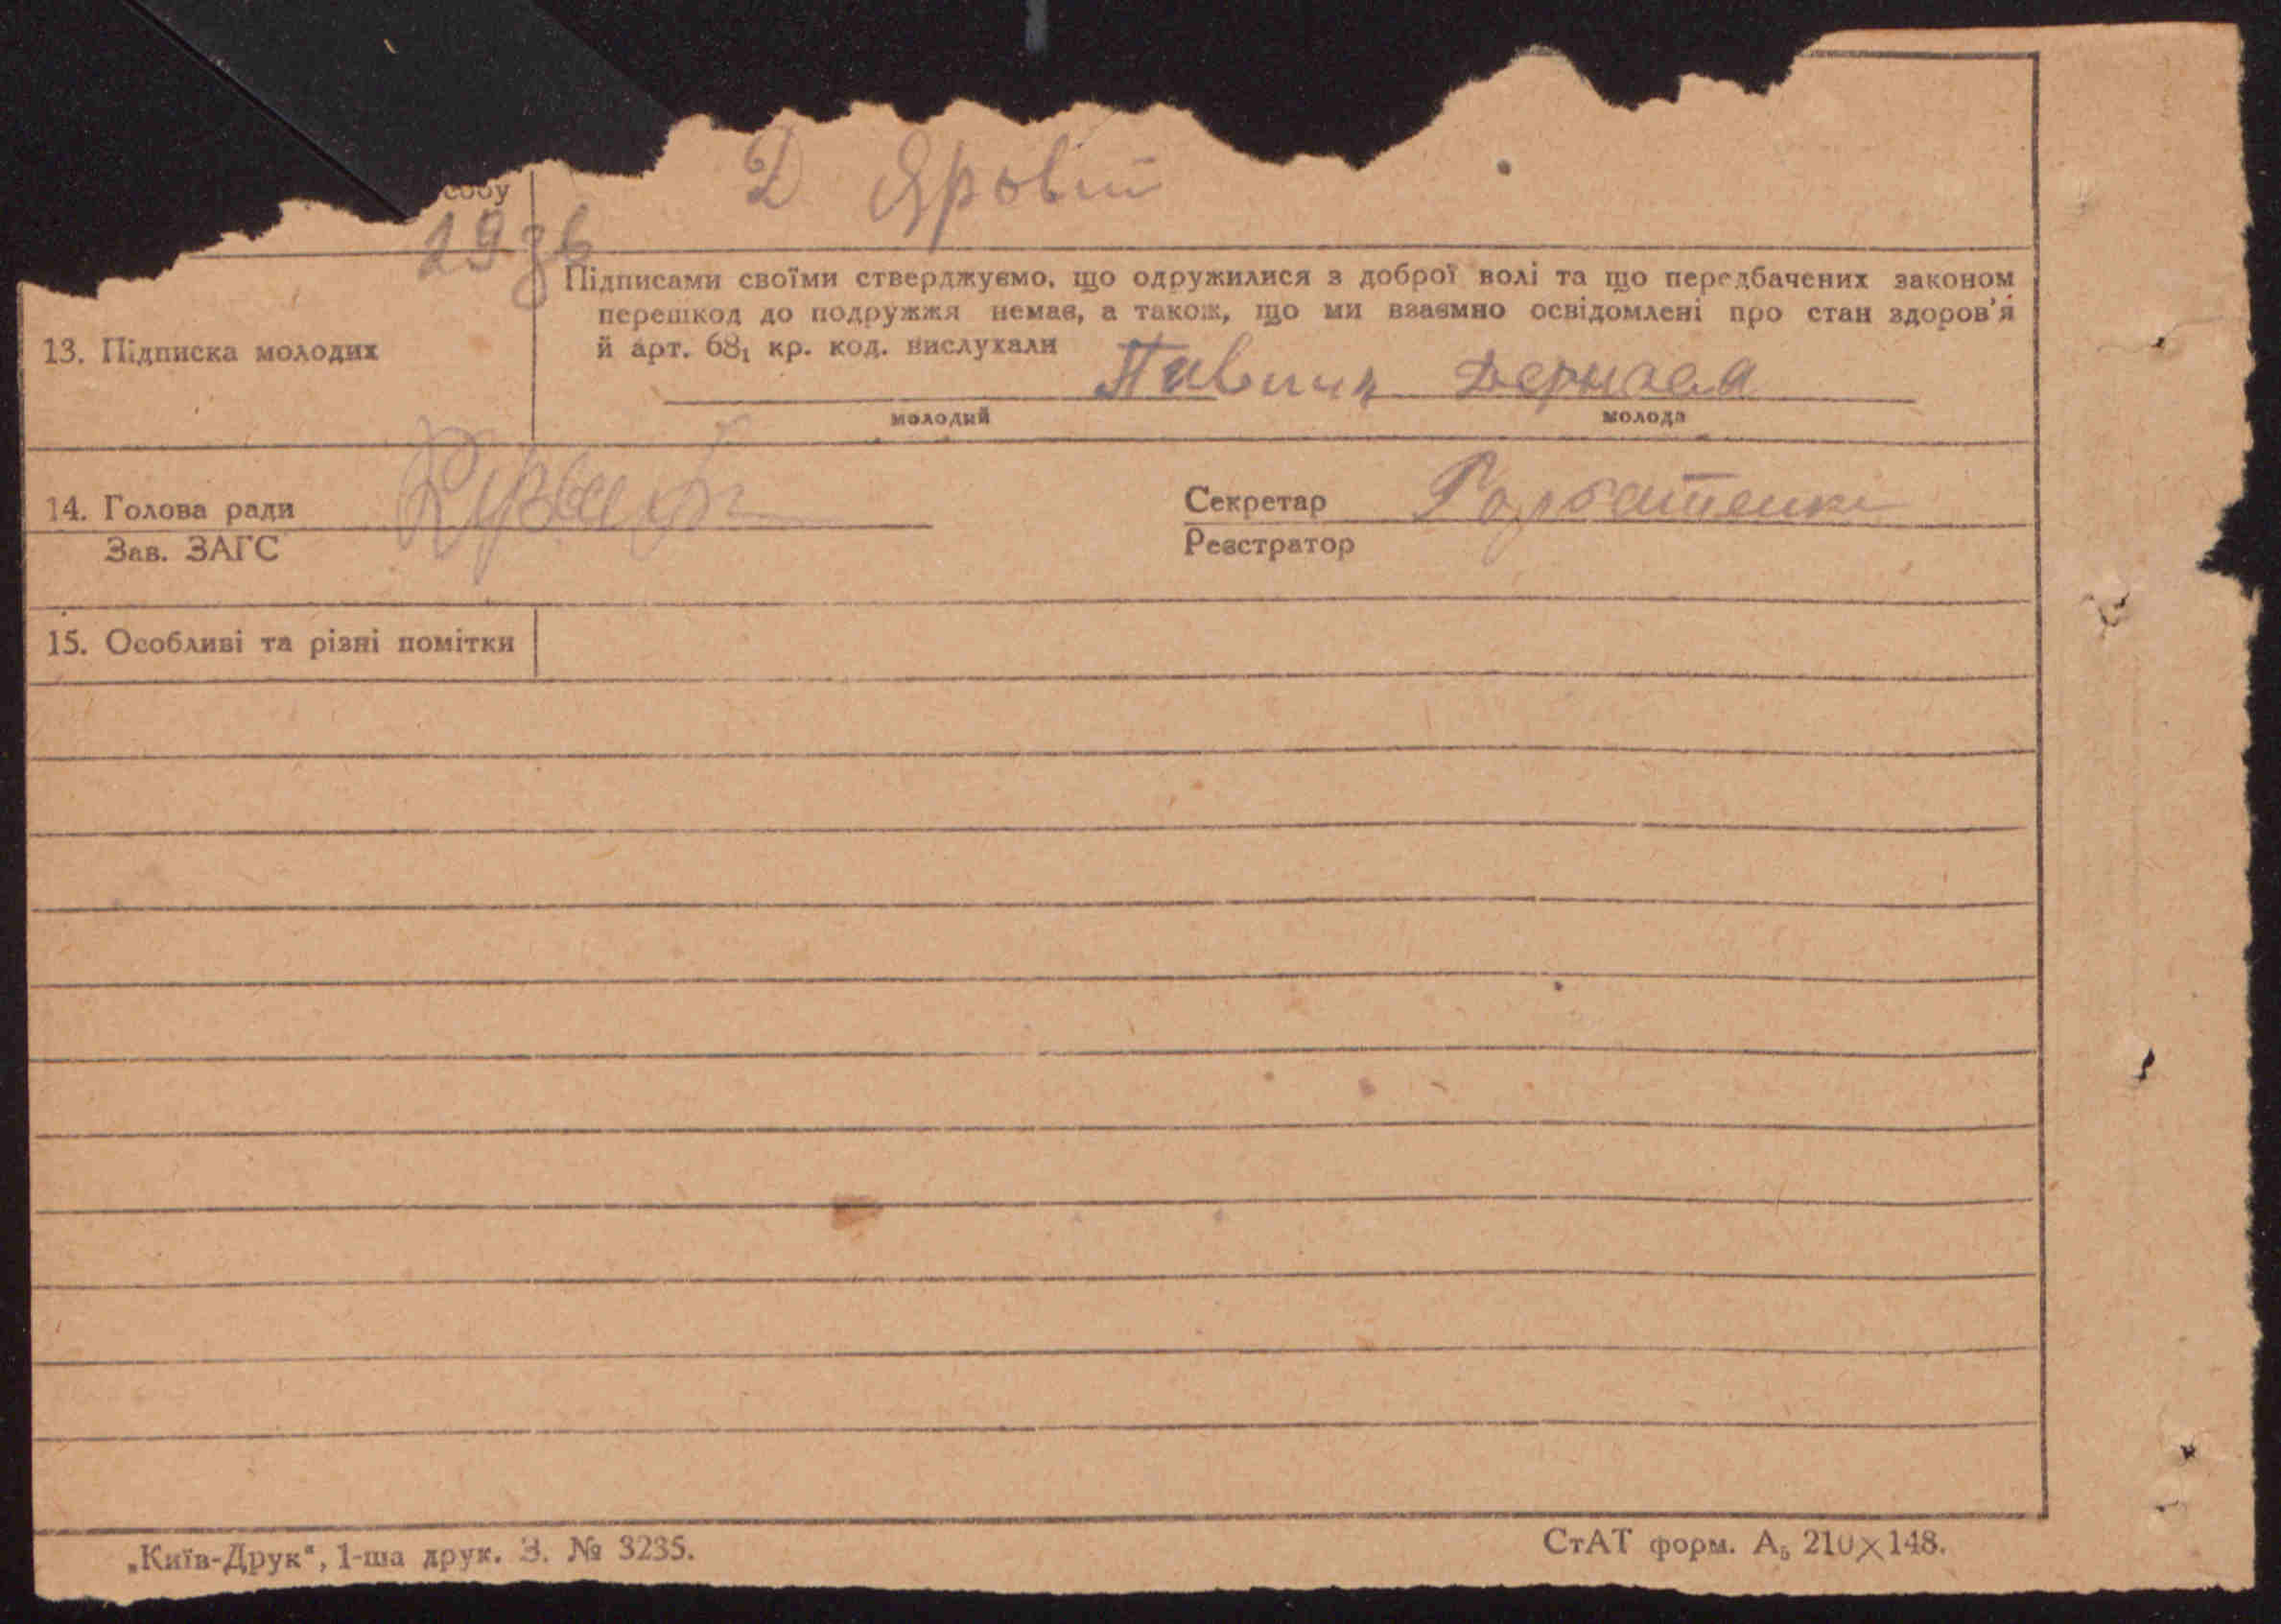 собу Д Яровій
1936
Підписами своїми стверджуємо, що одружилися з доброї волі та що передбачених законом
перешкод до подружжя немає, а також, що ми взаємно освідомлені про стан здоров'я
13. Підписка молодих
й арт. 68₁ кр. код. вислухали
молодий молода
14. Голова ради
Секретар Горбатенко
Зав. ЗАГС
Реєстратор
15. Особливі та різні помітки
„Київ-Друк“, 1-ша друк. З. № 3235.
СтАТ форм. А₅ 210×148.